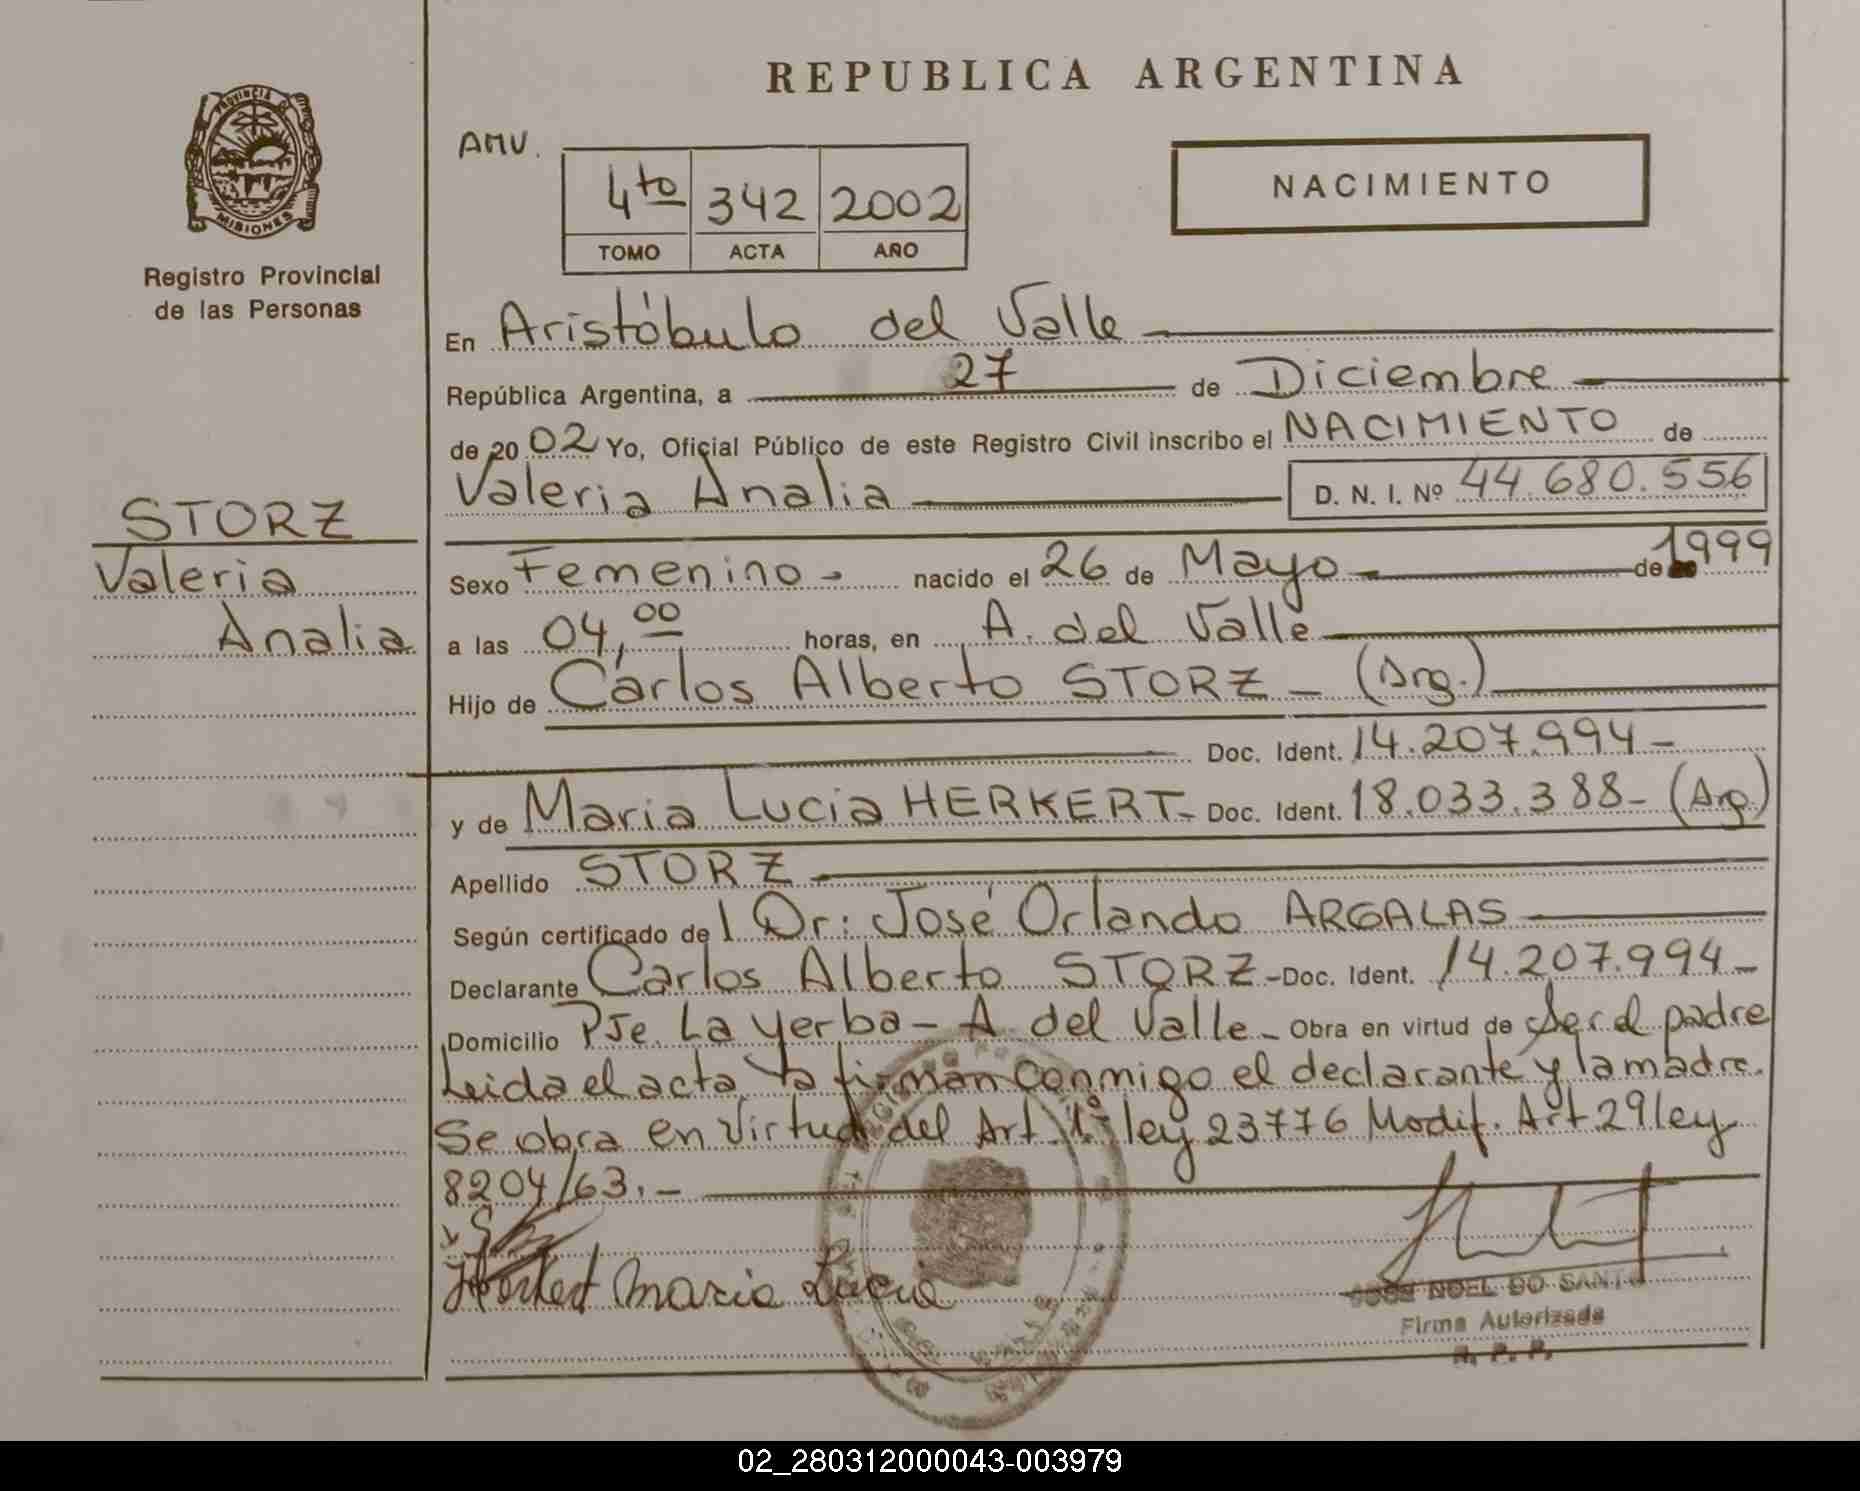 REPUBLICA ARGENTINA
PROVINCIA DE
MISIONES
Registro Provincial
de las Personas
AMV.
4to 342 2002
TOMO ACTA AÑO
NACIMIENTO
En Aristóbulo del Valle
República Argentina, a 27 de Diciembre
de 20 02 Yo, Oficial Público de este Registro Civil inscribo el NACIMIENTO de
Valeria Analia D. N. I. Nº 44.680.556
STORZ
Valeria
Analia
Sexo Femenino - nacido el 26 de Mayo de 1999
a las 04,00 horas, en A. del Valle
Hijo de Carlos Alberto STORZ - (Arg.)
Doc. Ident. 14.207.994-
y de Maria Lucia HERKERT- Doc. Ident. 18.033.388- (Arg.)
Apellido STORZ
Según certificado de 1 Dr: José Orlando ARGALAS
Declarante Carlos Alberto STORZ - Doc. Ident. 14.207.994-
Domicilio Pje. La yerba - A. del Valle - Obra en virtud de Ser el padre
Leida el acta, la firman conmigo el declarante y la madre.
Se obra en virtud del Art. 1º ley 23776 Modif. Art. 29 ley
8204/63.-
Herkert Maria Lucia
NOEL DO SANTO
Firma Autorizada
R. P. P.
02_280312000043-003979